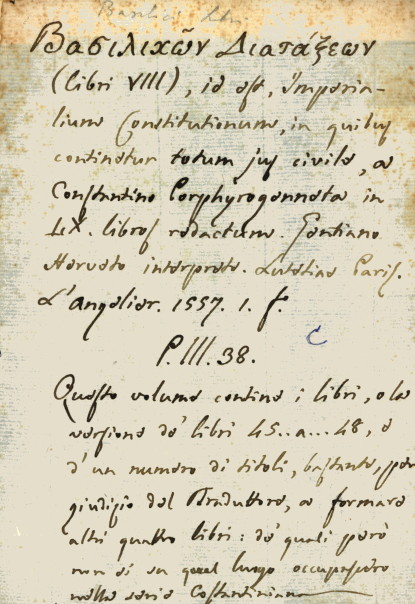 Basilicōn
Βασιλικῶν Διατάξεων
(libri VIII), id est, Imperia-
lium Constitutionum, in quibus
continetur totum jus civile, a
Constantino Porphyrogenneta in
LX. libros redactum. Gentiano
Herveto interprete. Lutetiae Paris.
L'Angelier. 1557. 1. f.
C
P.III.38.
Questo volume contine i libri, o la
versione de' libri 45..a...48, e
d'un numero di titoli, bastante, per
giudizio del Traduttore, a formare
altri quattro libri: de' quali però
non si sa qual luogo occupassero
nella serie Costantiniana